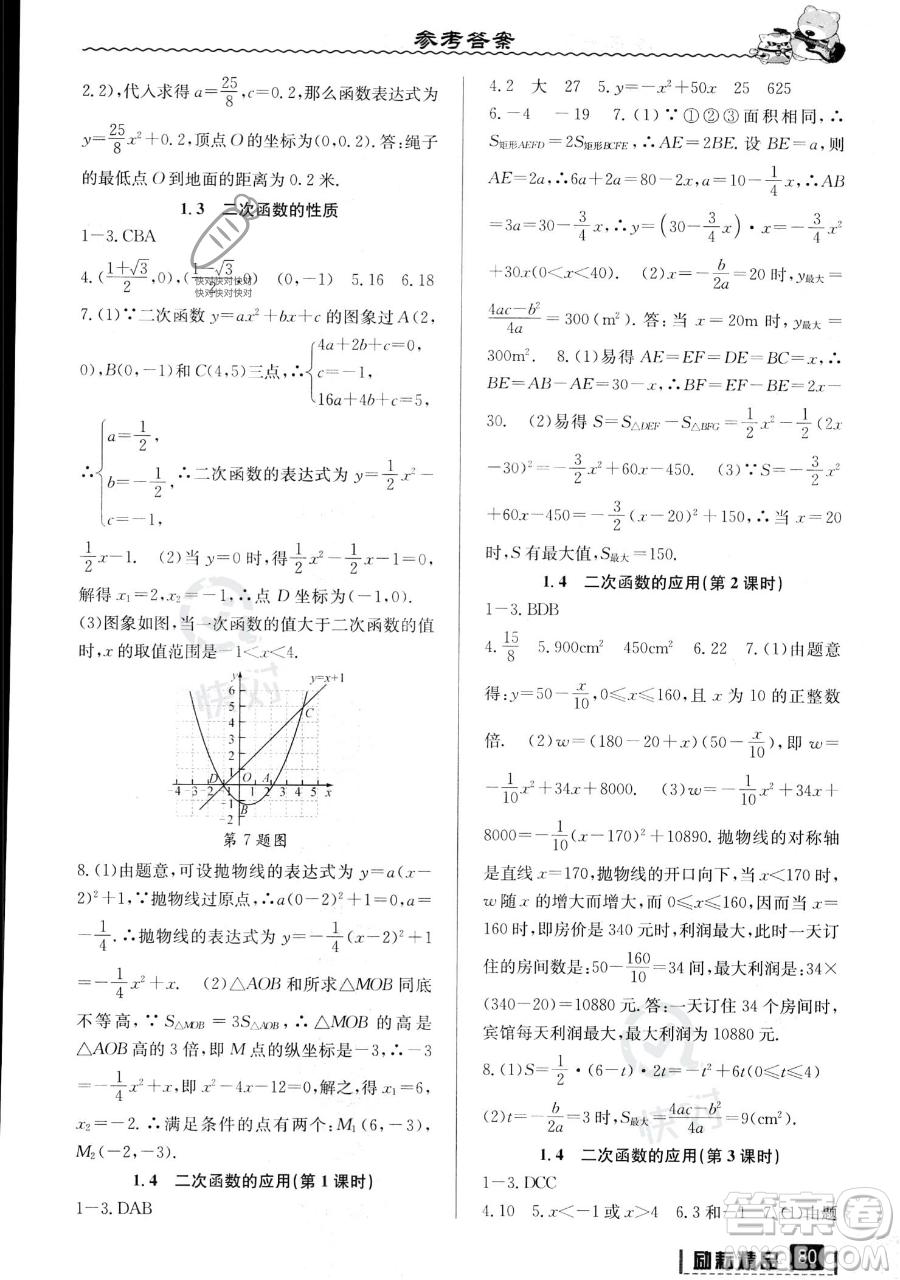 参考答案
2.2),代入求得 a=25/8,c=0.2,那么函数表达式为
y=25/8x²+0.2,顶点 O 的坐标为(0,0.2).答:绳子
的最低点 O 到地面的距离为 0.2 米.
1.3 二次函数的性质
1-3.CBA
4.(1+√3/2,0),(1-√3/2,0) (0,-1) 5.16 6.18
快对快对快对
快对快对快对
7.(1)∵二次函数 y=ax²+bx+c 的图象过 A(2,
0),B(0,-1)和 C(4,5)三点,∴{4a+2b+c=0,
c=-1,
16a+4b+c=5,
∴{a=1/2,
b=-1/2,
c=-1,
∴二次函数的表达式为 y=1/2x²-
1/2x-1. (2)当 y=0 时,得 1/2x²-1/2x-1=0,
解得 x₁=2,x₂=-1,∴点 D 坐标为(-1,0).
(3)图象如图,当一次函数的值大于二次函数的值
时,x 的取值范围是-1<x<4.
y
y=x+1
6
5
4
3
2
1
C
D
O
A
-4 -3 -2 -1
1 2 3 4 5
x
B
-1
-2
第 7 题图
8.(1)由题意,可设抛物线的表达式为 y=a(x-
2)²+1,∵抛物线过原点,∴a(0-2)²+1=0,a=
-1/4.∴抛物线的表达式为 y=-1/4(x-2)²+1
=-1/4x²+x. (2)△AOB 和所求△MOB 同底
不等高,∵S△MOB=3S△AOB,∴△MOB 的高是
△AOB 高的 3 倍,即 M 点的纵坐标是-3,∴-3
=-1/4x²+x,即 x²-4x-12=0,解之,得 x₁=6,
x₂=-2,∴满足条件的点有两个:M₁(6,-3),
M₂(-2,-3).
1.4 二次函数的应用(第 1 课时)
1-3.DAB
4.2 大 27 5.y=-x²+50x 25 625
6.-4 -19 7.(1)∵①②③面积相同,∴
S矩形AEFD=2S矩形BCFE,∴AE=2BE.设 BE=a,则
AE=2a,∴6a+2x=80,∴a=10-1/4x,∴AB=
3a=30-3/4x,∴y=(30-3/4x)·x=-3/4x²
+30x(0<x<40). (2)x=-b/2a=20 时,y最大=
4ac-b²/4a=300(m²).答:当 x=20m 时,y最大=
300m². 8.(1)易得 AE=EF=DE=BC=x,∴
BE=AB-AE=30-x,∴BF=EF-BE=2x-
30. (2)易得 S=S△DEF-S△BFG=1/2x²-1/2(2x
-30)²=-3/2x²+60x-450. (3)∵S=-3/2x²
+60x-450=-3/2(x-20)²+150,∴当 x=20
时,S 有最大值,S最大=150.
1.4 二次函数的应用(第 2 课时)
1-3.BDB
4.15/8 5.900cm² 6.22 7.(1)由题意
得:y=50-x/10,0≤x≤160,且 x 为 10 的正整数
倍. (2)w=(180-20+x)(50-x/10),即 w=
-1/10x²+34x+8000. (3)w=-1/10x²+34x+
8000=-1/10(x-170)²+10890.抛物线的对称轴
是直线 x=170,抛物线的开口向下,当 x<170 时,
w 随 x 的增大而增大,而 0≤x≤160,因而当 x=
160 时,即房价是 340 元时,利润最大,此时一天订
住的房间数是:50-160/10=34 间,最大利润是:34×
(340-20)=10880 元.答:一天订住 34 个房间时,
宾馆每天利润最大,最大利润为 10880 元.
8.(1)S=1/2·(6-t)·2t=-t²+6t(0≤t≤4)
(2)t=-b/2a=3 时,S最大=4ac-b²/4a=9(cm²).
1.4 二次函数的应用(第 3 课时)
1-3.DCC
4.10 5.x<-1 或 x>4 6.3 和 -1 7.(1)由题
励耘精品 80
快对
快对
答案圈
MXQE.COM